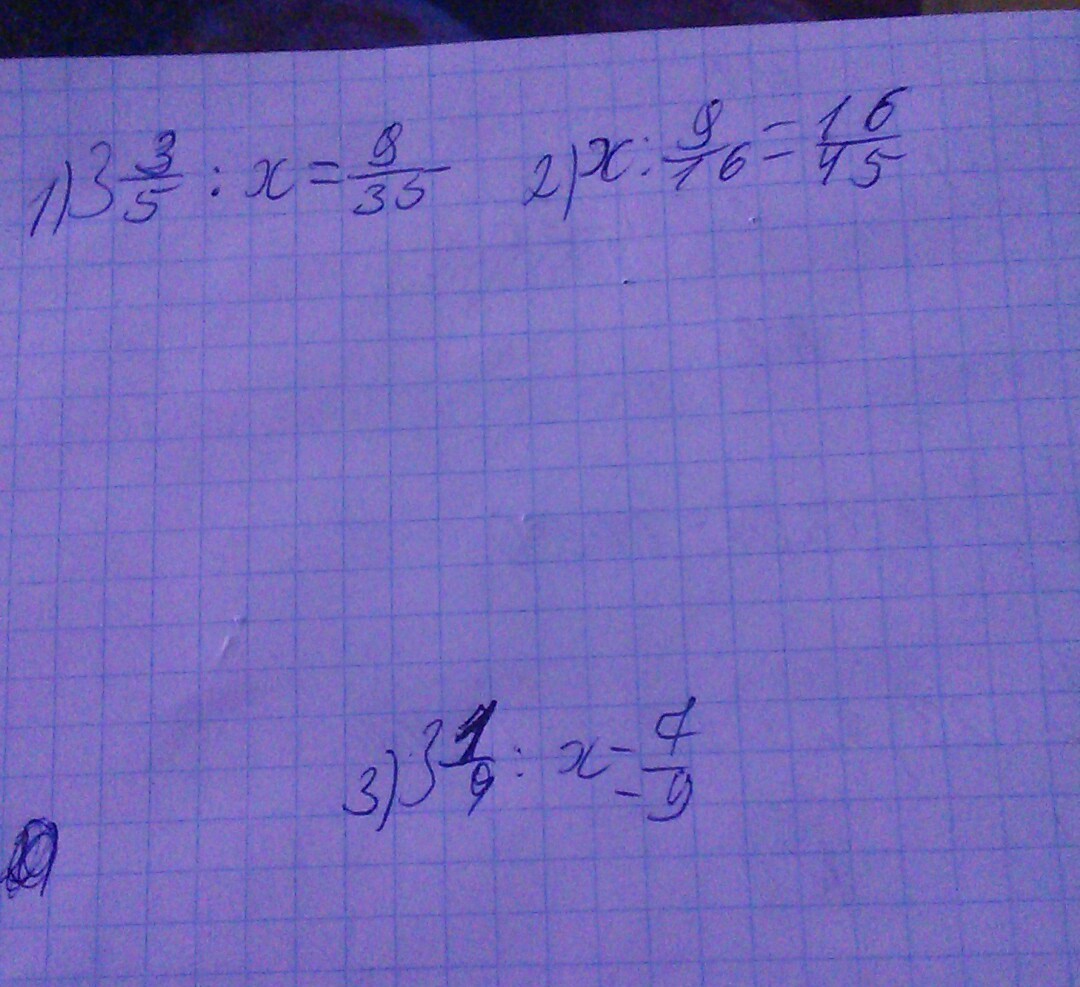 1) 3 3/5 : x = 9/35 2) x : 9/16 = 16/45
3) 3 1/9 : x = 7/9